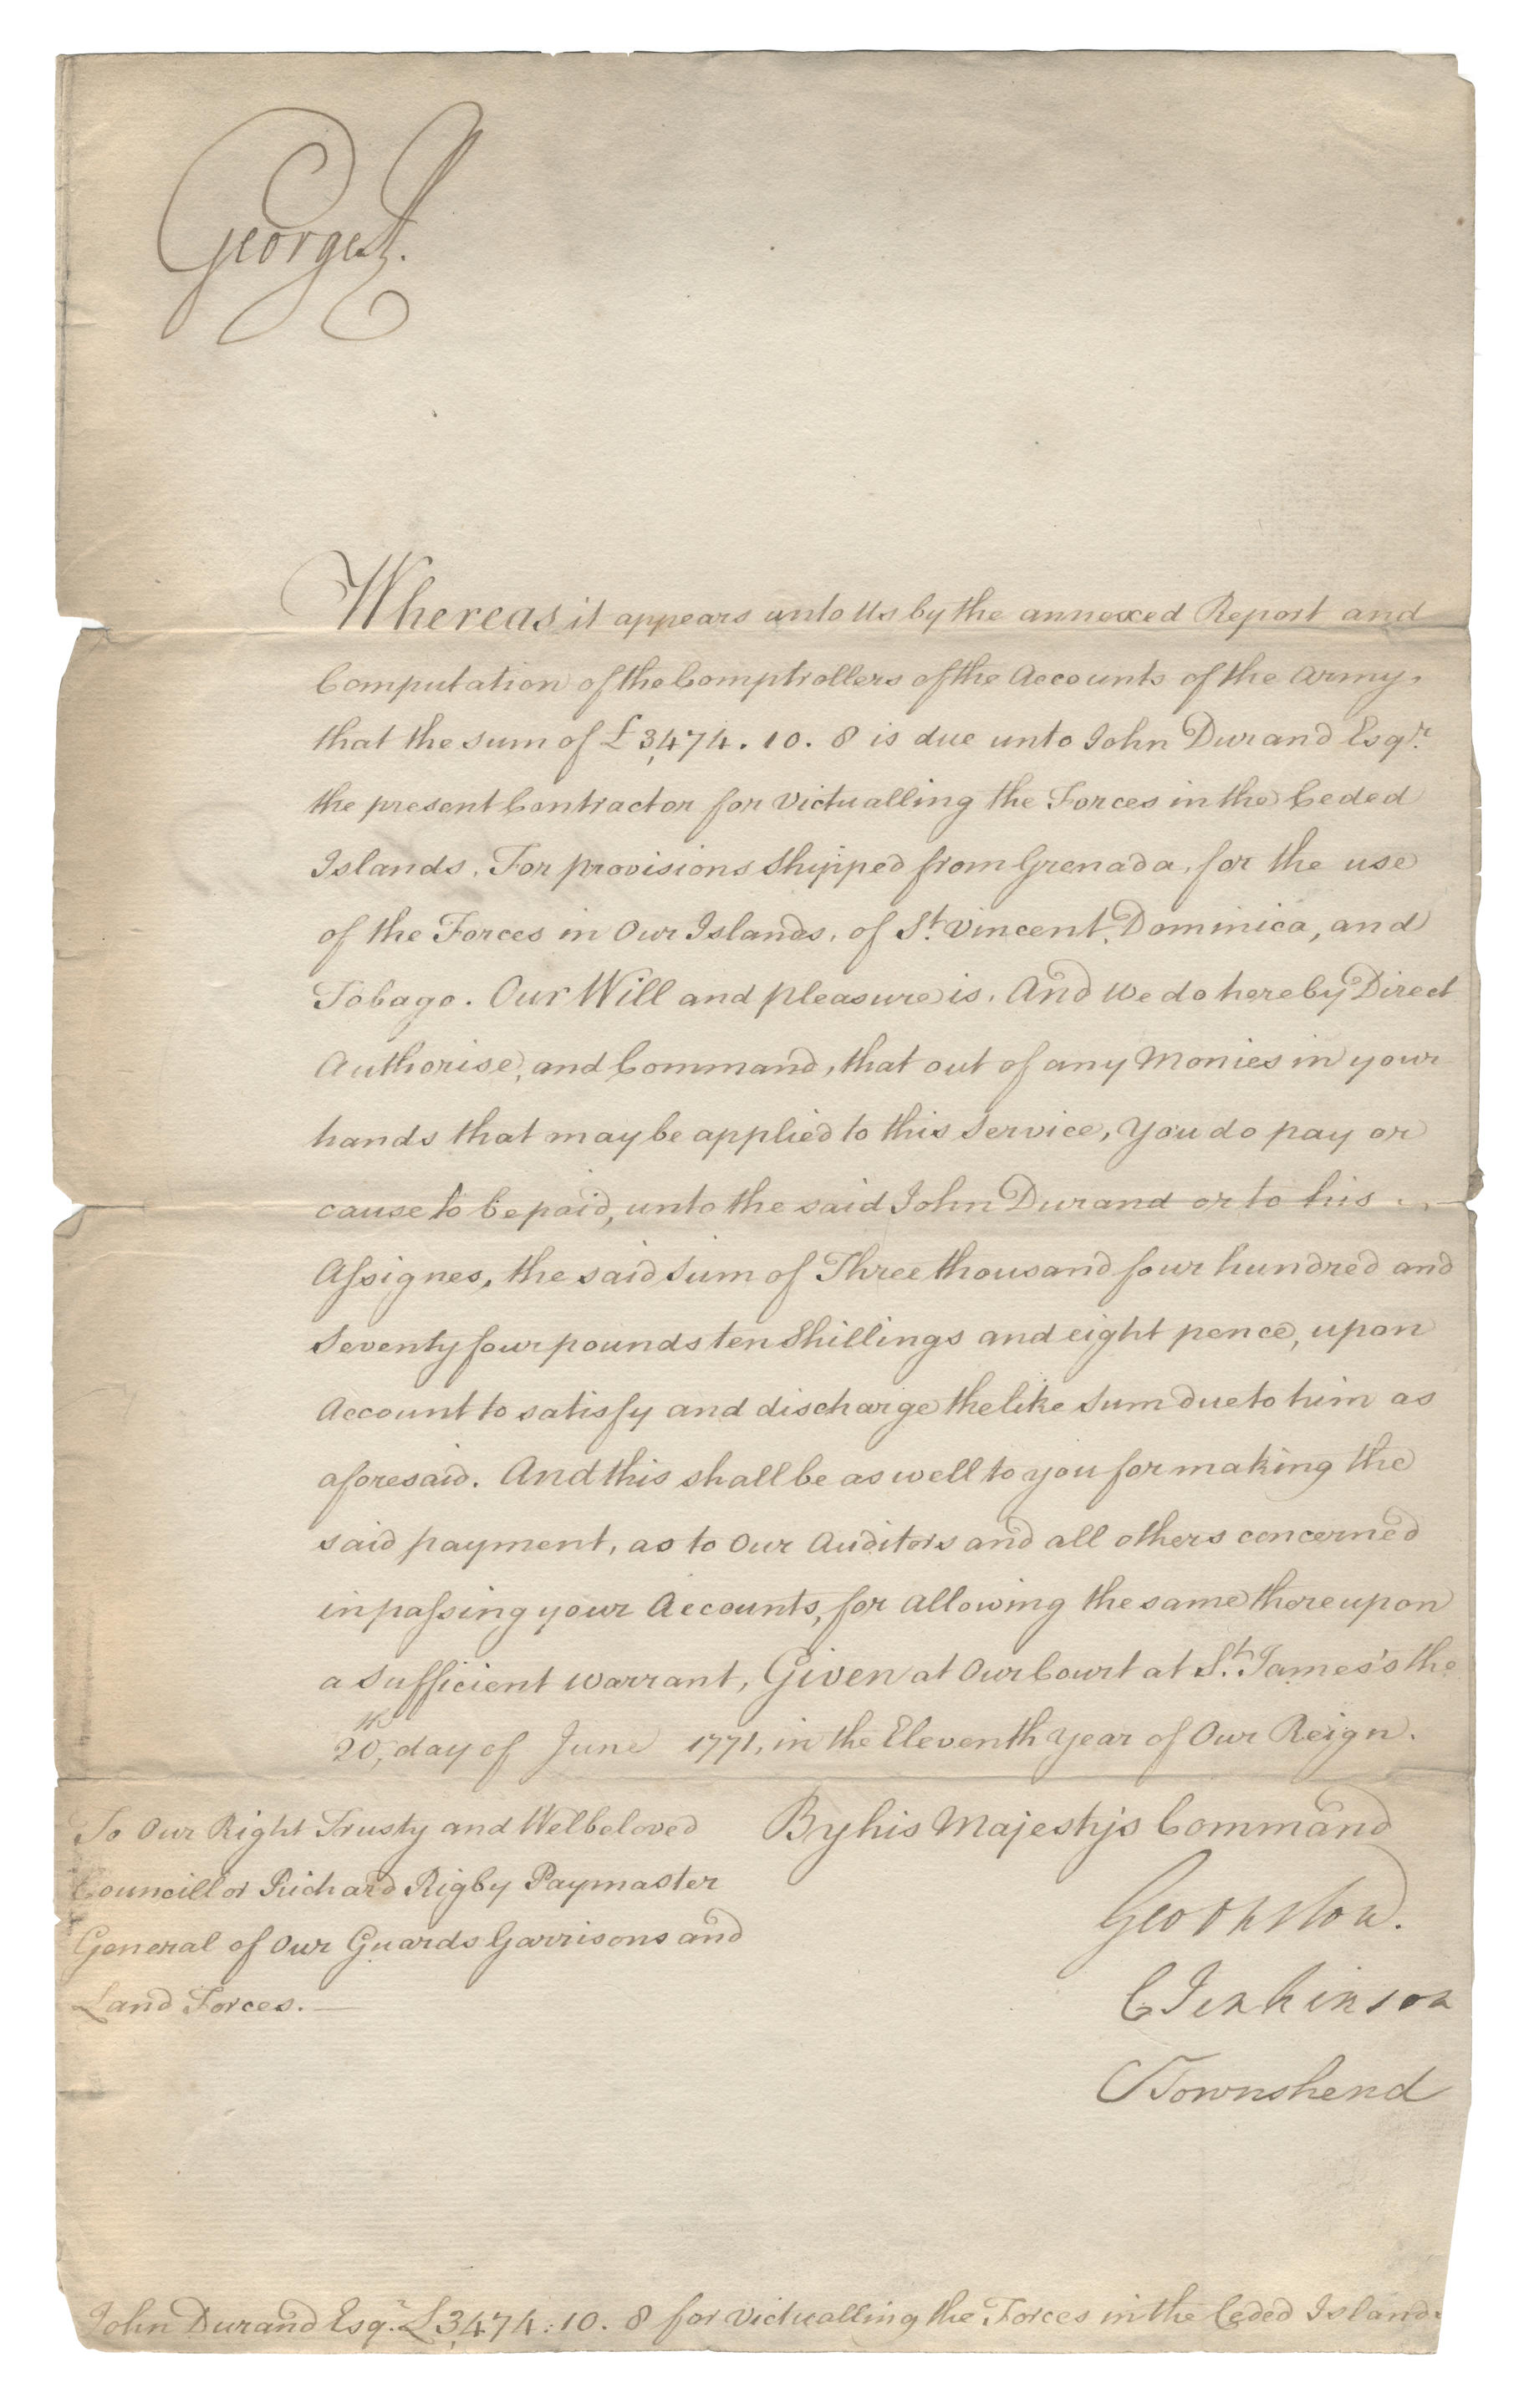 George R.
Whereas it appears unto Us by the annexed Report and
Computation of the Comptrollers of the Accounts of the Army,
that the sum of £3,474. 10. 8 is due unto John Durand Esqr.
the present Contractor for Victualling the Forces in the Ceded
Islands, For provisions Shipped from Grenada, for the use
of the Forces in Our Islands, of St. Vincent, Dominica, and
Tobago. Our Will and pleasure is, And We do hereby Direct
Authorise, and Command, that out of any Monies in your
hands that may be applied to this Service, You do pay or
cause to be paid, unto the said John Durand or to his
Assignes, the said Sum of Three thousand four hundred and
Seventy four pounds ten Shillings and eight pence, upon
Account to satisfy and discharge the like Sum due to him as
aforesaid. And this shall be as well to you for making the
said payment, as to Our Auditors and all others concerned
in passing your Accounts, for allowing the same thereupon
a Sufficient Warrant, Given at Our Court at St. James's the
20th, day of June 1771, in the Eleventh Year of Our Reign.
To Our Right Trusty and Welbeloved
Councillor Richard Rigby Paymaster
General of Our Guards Garrisons and
Land Forces.
By his Majesty's Command
Geo Onslow.
C Jenkinson
C Townshend
John Durand Esqr. £3,474: 10. 8 for Victualling the Forces in the Ceded Islands